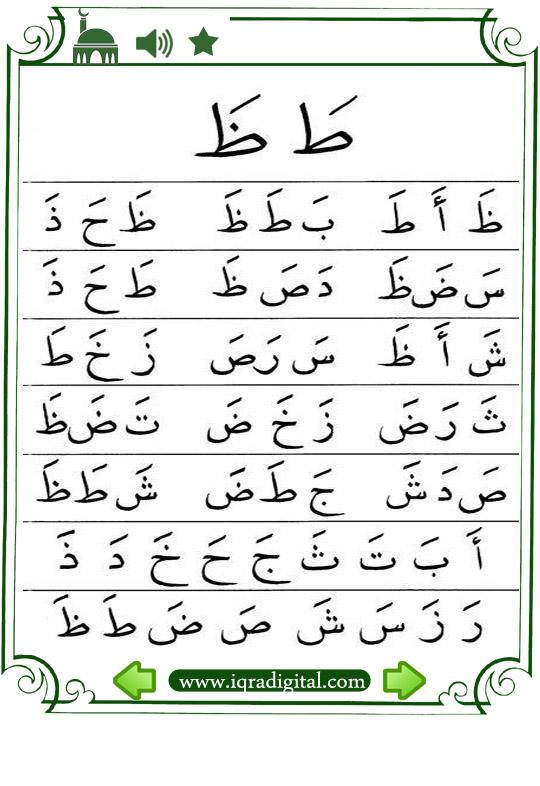 طَ ظَ
ظَ أَ طَ بَ طَ ظَ ظَ حَ ذَ
سَ ضَ ظَ دَ صَ ظَ طَ حَ ذَ
شَ أَ ظَ سَ رَ صَ زَ خَ طَ
ثَ رَ ضَ زَ خَ ضَ تَ ضَ ظَ
صَ دَ شَ جَ طَ ضَ شَ طَ ظَ
أَ بَ تَ ثَ جَ حَ خَ دَ ذَ
رَ زَ سَ شَ صَ ضَ طَ ظَ
www.iqradigital.com